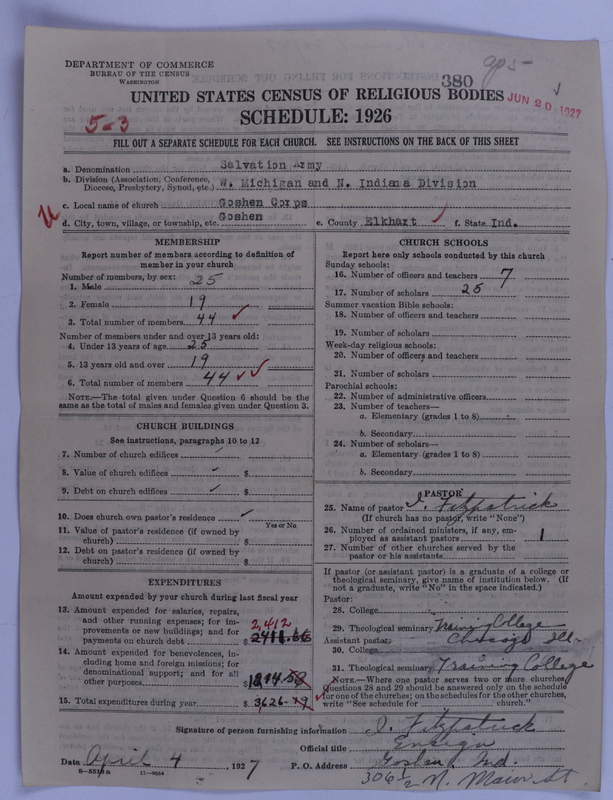 DEPARTMENT OF COMMERCE
BUREAU OF THE CENSUS
WASHINGTON
380
UNITED STATES CENSUS OF RELIGIOUS BODIES
JUN 20 1927
5-3
SCHEDULE: 1926
FILL OUT A SEPARATE SCHEDULE FOR EACH CHURCH. SEE INSTRUCTIONS ON THE BACK OF THIS SHEET
a. Denomination Salvation Army
b. Division (Association, Conference, Diocese, Presbytery, Synod, etc.) W. Michigan and N. Indiana Division
c. Local name of church Goshen Corps
d. City, town, village, or township, etc. Goshen e. County Elkhart f. State Ind.
MEMBERSHIP
Report number of members according to definition of
member in your church
Number of members, by sex:
1. Male 25
2. Female 19
3. Total number of members 44
Number of members under and over 13 years old:
4. Under 13 years of age 25
5. 13 years old and over 19
6. Total number of members 44
NOTE.—The total given under Question 6 should be the
same as the total of males and females given under Question 3.
CHURCH BUILDINGS
See instructions, paragraphs 10 to 12
7. Number of church edifices
8. Value of church edifices $
9. Debt on church edifices $
10. Does church own pastor's residence
Yes or No.
11. Value of pastor's residence (if owned by
church) $
12. Debt on pastor's residence (if owned by
church) $
EXPENDITURES
Amount expended by your church during last fiscal year
13. Amount expended for salaries, repairs,
and other running expenses; for im-
provements or new buildings; and for
payments on church debt $ 2411.66
2,412
14. Amount expended for benevolences, in-
cluding home and foreign missions; for
denominational support; and for all
other purposes
15. Total expenditures during year $ 3626.49
CHURCH SCHOOLS
Report here only schools conducted by this church
Sunday schools:
16. Number of officers and teachers 7
17. Number of scholars 25
Summer vacation Bible schools:
18. Number of officers and teachers
19. Number of scholars
Week-day religious schools:
20. Number of officers and teachers
21. Number of scholars
Parochial schools:
22. Number of administrative officers
23. Number of teachers—
a. Elementary (grades 1 to 8)
b. Secondary
24. Number of scholars—
a. Elementary (grades 1 to 8)
b. Secondary
PASTOR
25. Name of pastor I. Fitzpatrick
(If church has no pastor, write "None")
26. Number of ordained ministers, if any, em-
ployed as assistant pastors 1
27. Number of other churches served by the
pastor or his assistants
If pastor (or assistant pastor) is a graduate of a college or
theological seminary, give name of institution below. (If
not a graduate, write "No" in the space indicated.)
Pastor:
28. College
29. Theological seminary Training College
Assistant pastor: Chicago Ill.
30. College
31. Theological seminary Training College
NOTE.—Where one pastor serves two or more churches,
Questions 28 and 29 should be answered only on the schedule
for one of the churches; on the schedules for the other churches,
write "See schedule for church."
Signature of person furnishing information I. Fitzpatrick
Official title Ensign
Date April 4, 1927 P. O. Address Goshen, Ind.
8—5518a 11—9054 306 1/2 N. Main St.